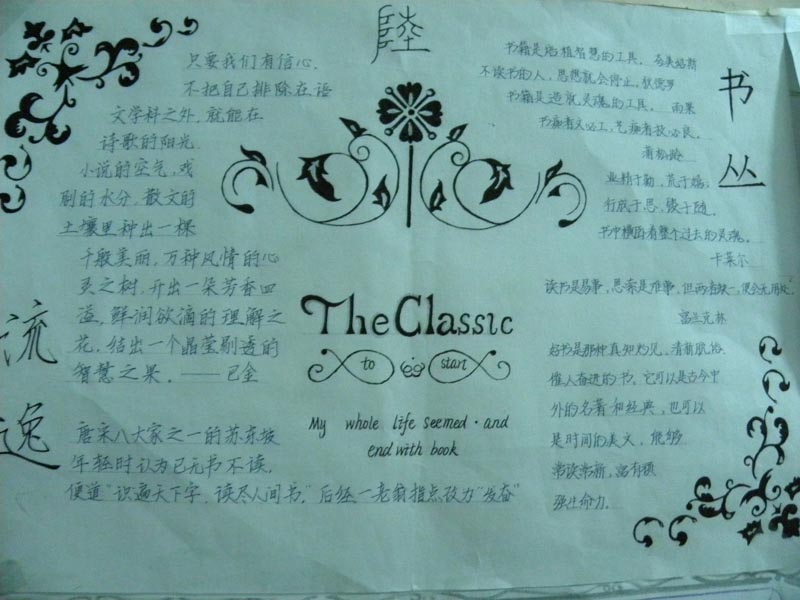 陸
只要我们有信心.
不把自己排除在语
文学科之外, 就能在
诗歌的阳光
小说的空气, 戏
剧的水分, 散文的
土壤里种出一棵
千般美丽, 万种风情的心
灵之树, 开出一朵芳香四
溢, 鲜润欲滴的理解之
花, 结出一个晶莹剔透的
智慧之果. ——巴金
流
逸
唐宋八大家之一的苏东坡
年轻时认为已无书不读,
便道"识遍天下字, 读尽人间书." 后经一老翁指点改为"发奋"
The Classic
to start
My whole life seemed · and
end with book
书丛
书籍是培植智慧的工具. 夸美纽斯
不读书的人, 思想就会停止. 狄德罗
书籍是造就灵魂的工具. 雨果
书痴者文必工, 艺痴者技必良.
蒲松龄
业精于勤, 荒于嬉,
行成于思, 毁于随.
书中横卧着整个过去的灵魂.
卡莱尔
读书是易事, 思索是难事, 但两者缺一, 便全无用处.
富兰克林
好书是那种真知灼见, 清新肌俗
催人奋进的书. 它可以是古今中
外的名著和经典, 也可以
是时间的美文, 能够
常读常新, 富有顽
强生命力.